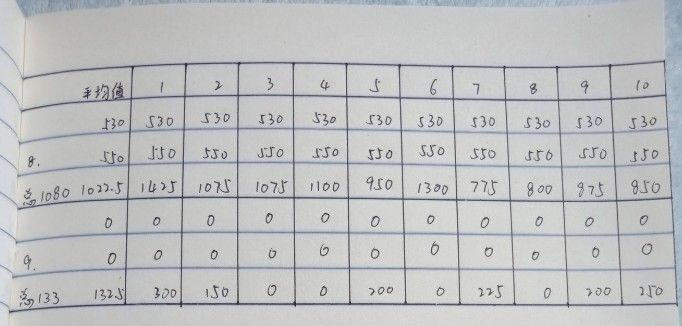 平均值 1 2 3 4 5 6 7 8 9 10
530 530 530 530 530 530 530 530 530 530 530
8. 550 550 550 550 550 550 550 550 550 550 550
高1080 1022.5 1425 1075 1075 1100 950 1300 775 800 875 850
0 0 0 0 0 0 0 0 0 0 0
9. 0 0 0 0 0 0 0 0 0 0 0
高133 132.5 300 150 0 0 200 0 225 0 200 250